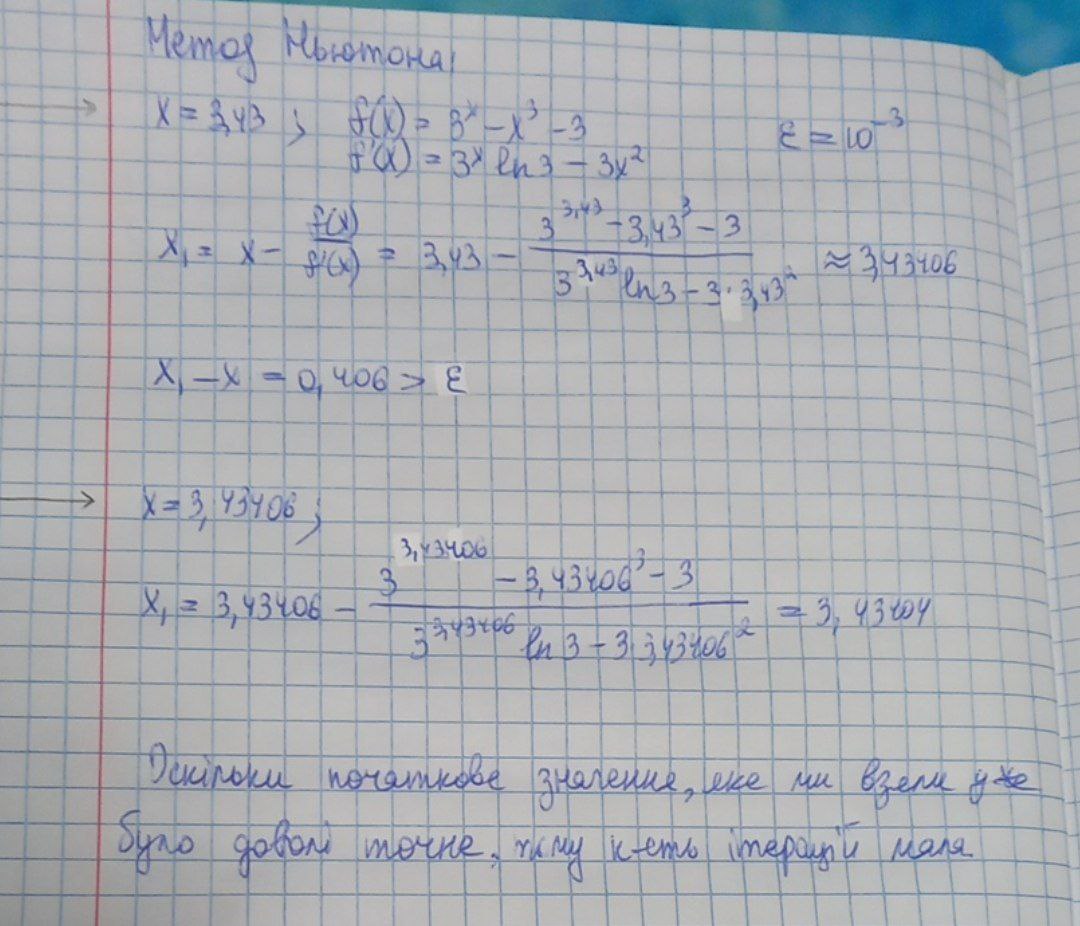 Метод Ньютона:
x = 3,43 ; f(x) = 3^x - x^3 - 3 ε = 10^-3
f'(x) = 3^x ln 3 - 3x^2
x₁ = x - f(x)/f'(x) = 3,43 - (3^3,43 - 3,43^3 - 3)/(3^3,43 ln 3 - 3·3,43^2) ≈ 3,43406
x₁ - x = 0,406 > ε
x = 3,43406 ;
x₁ = 3,43406 - (3^3,43406 - 3,43406^3 - 3)/(3^3,43406 ln 3 - 3 3,43406^2) = 3,43404
Оскільки початкове значення, яке ми взяли уже
було доволі точне, тому к-сть ітерацій мала